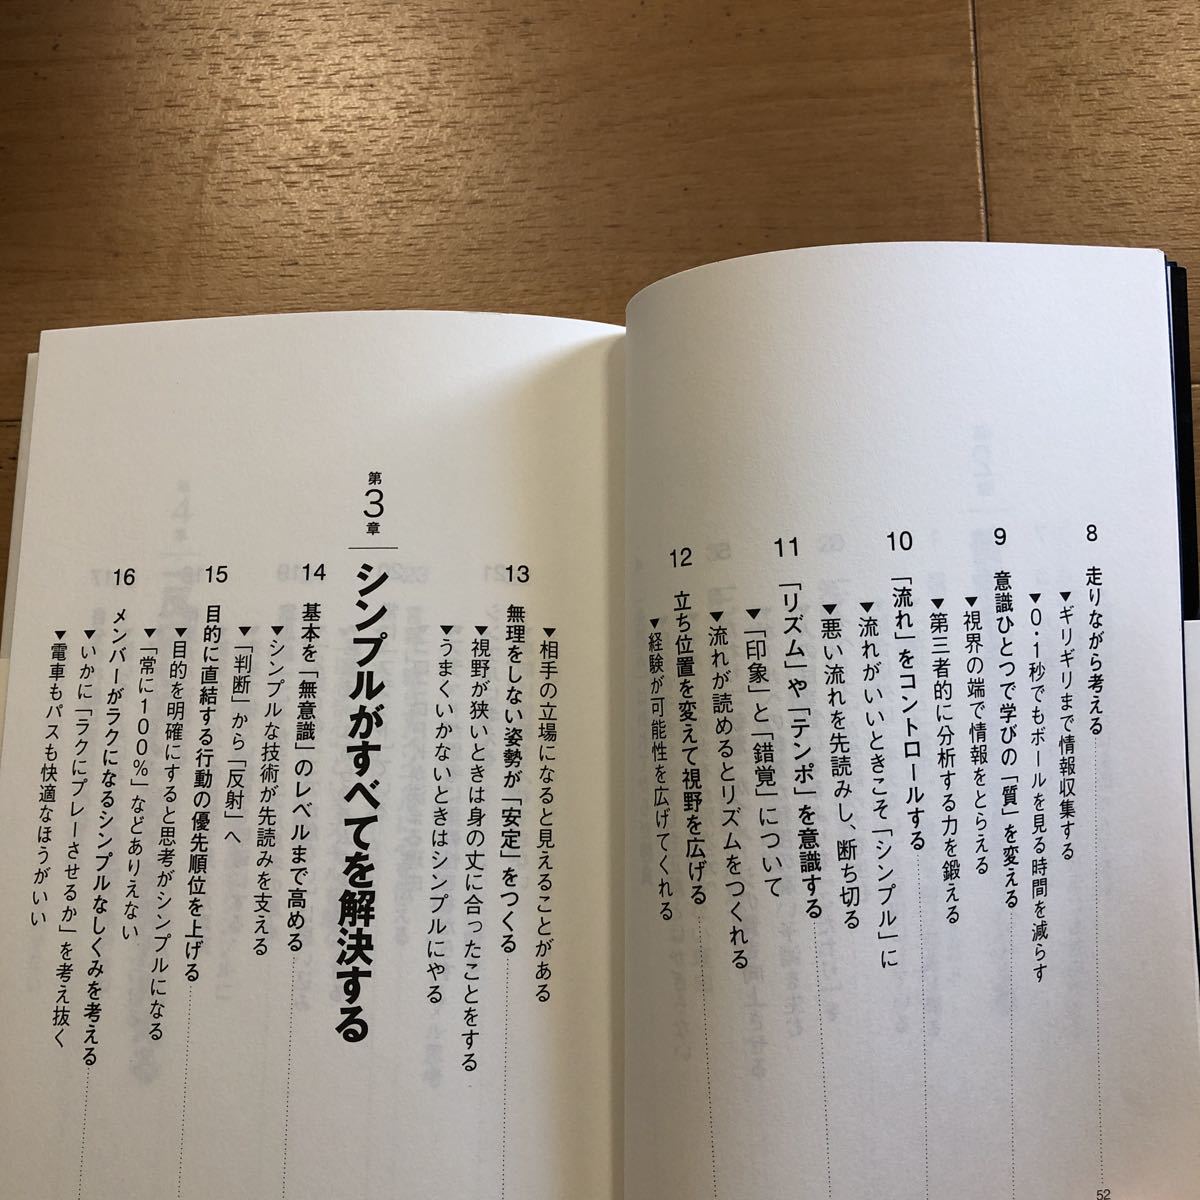 8 走りながら考える
▼ギリギリまで情報収集する
▼0・1秒でもボールを見る時間を減らす
9 意識ひとつで学びの「質」を変える
▼視界の端で情報をとらえる
▼第三者的に分析する力を鍛える
10 「流れ」をコントロールする
▼流れがいいときこそ「シンプル」に
▼悪い流れを先読みし、断ち切る
11 「リズム」や「テンポ」を意識する
▼「印象」と「錯覚」について
▼流れが読めるとリズムをつくれる
12 立ち位置を変えて視野を広げる
▼経験が可能性を広げてくれる
52
▼相手の立場になると見えることがある
13 無理をしない姿勢が「安定」をつくる
▼視野が狭いときは身の丈に合ったことをする
▼うまくいかないときはシンプルにやる
第3章 シンプルがすべてを解決する
14 基本を「無意識」のレベルまで高める
▼シンプルな技術が先読みを支える
▼「判断」から「反射」へ
15 目的に直結する行動の優先順位を上げる
▼目的を明確にすると思考がシンプルになる
▼「常に100%」などありえない
16 メンバーがラクになるシンプルなしくみを考える
▼いかに「ラクにプレーさせるか」を考え抜く
▼電車もパスも快適なほうがいい